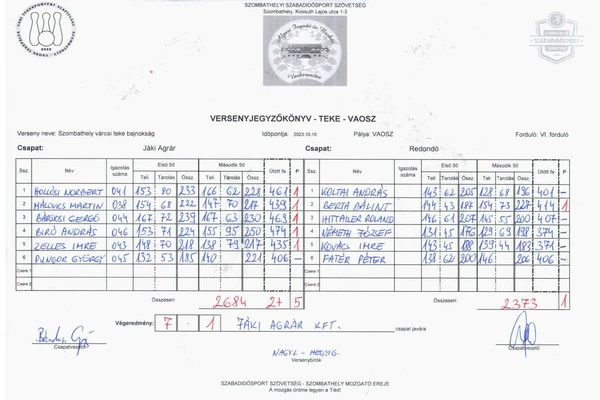 SZOMBATHELYI SZABADIDŐSPORT SZÖVETSÉG
Szombathely, Kossuth Lajos utca 1-3
VERSENYJEGYZŐKÖNYV - TEKE - VAOSZ
Verseny neve: Szombathely városi teke bajnokság Időpontja: 2023.10.10 Pálya: VAOSZ Forduló: VI. forduló
Csapat: Jáki Agrár Csapat: Redondó
Ssz. Név Igazolás száma Első 50 Második 50 Ütött fa P Ssz. Név Igazolás száma Első 50 Második 50 Ütött fa P
Teli Tarolás Össz. Teli Tarolás Össz. Teli Tarolás Össz. Teli Tarolás Össz.
1 HOLLÓSI NORBERT 041 153 80 233 166 62 228 461 1 1 KOLTAI ANDRÁS 143 62 205 128 68 196 401 –
2 MALOVICS MARTIN 038 154 68 222 147 70 217 439 1 2 BERTA BÁLINT 144 43 187 154 73 227 414 1
3 GERGŐ 044 167 72 239 167 63 230 469 1 3 ROLAND 146 61 207 145 55 200 407 –
4 BIRÓ ANDRÁS 046 153 71 224 155 95 250 474 1 4 NÉMETH JÓZSEF 131 45 176 129 69 198 374 –
5 ZELLES IMRE 043 148 70 218 138 79 217 435 1 5 KOVÁCS IMRE 143 45 188 139 44 183 371 –
6 PUNGOR GYÖRGY 045 132 53 185 140 221 406 – 6 FATÉR PÉTER 138 62 200 146 206 406 –
Csere 1 Csere 1
Csere 2 Csere 2
Összesen: 2684 2+ 5 Összesen: 2373 1
Végeredmény: 7 - 1 JÁKI AGRÁR KFT. csapat javára
Csapatvezető Csapatvezető
Versenybírók
SZABADIDŐSPORT SZÖVETSÉG - SZOMBATHELY MOZGATÓ EREJE
A mozgás öröme legyen a Tiéd!